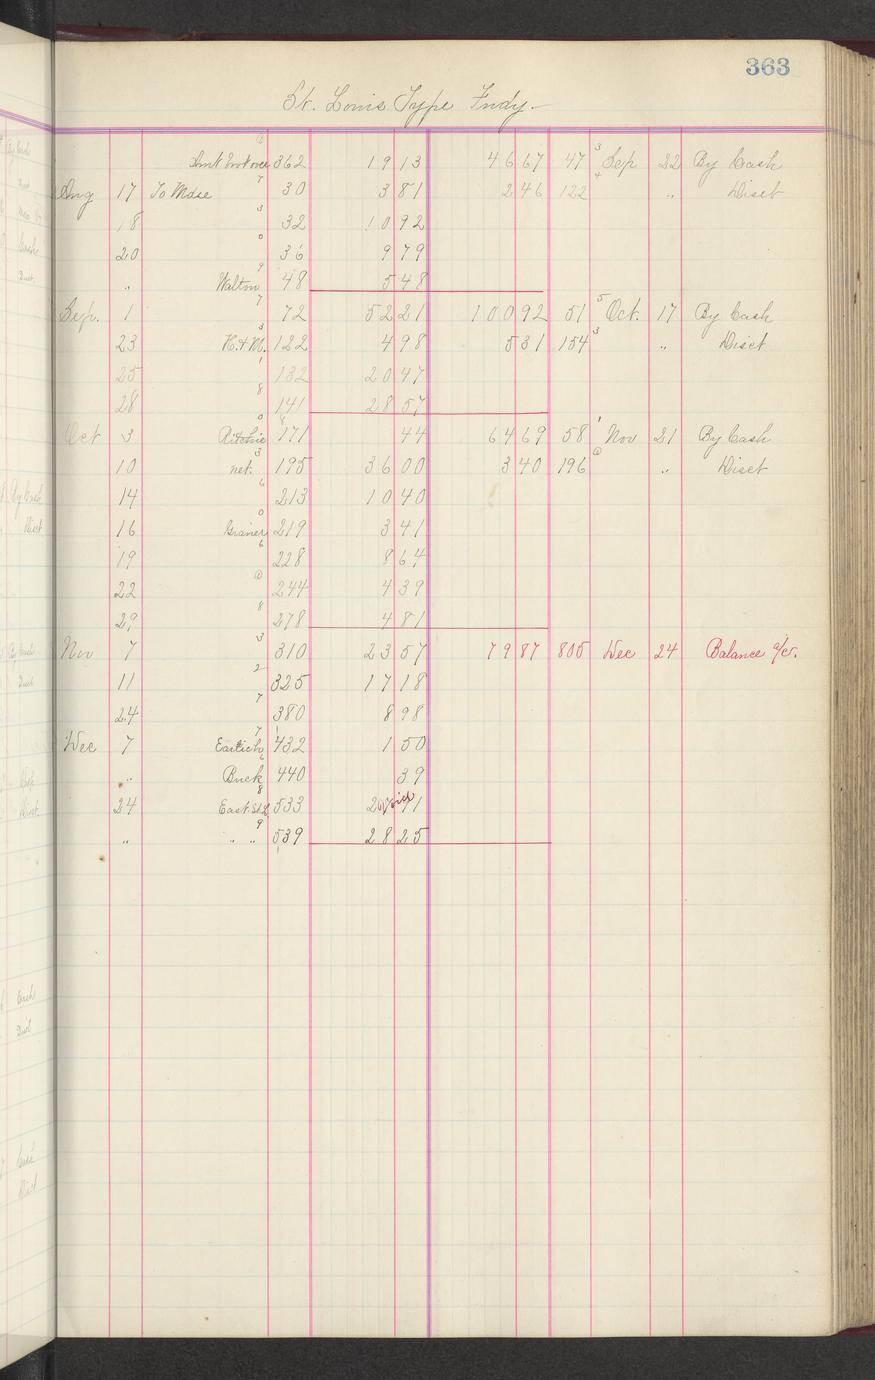 363
St. Louis Type Fndy.
Amt Brot over 362 19 13 46 67 47 3 Sep 22 By Cash
Aug 17 To Mdse 7 30 3 81 2 46 122 4 " Disct
18 3 32 10 92
20 0 36 9 79
" Walton 9 48 5 48
Sep. 1 7 72 52 21 100 92 51 5 Oct. 17 By Cash
23 H. & M. 3 122 4 98 5 31 154 3 " Disct
25 1 132 20 47
28 8 141 28 57
Oct 3 Ritchie 0 171 44 64 69 58 1 Nov 21 By Cash
10 net. 3 195 36 00 3 40 196 " Disct
14 6 213 10 40
16 0 219 3 41
19 6 228 8 64
22 244 4 39
29 8 278 4 81
Nov 7 3 310 23 57 79 87 805 Dec 24 Balance a/c.
11 2 325 17 18
24 7 380 8 98
Dec 7 7 432 1 50
" Buck 6 440 39
24 East St. L 8 533
" " " 9 539 28 25